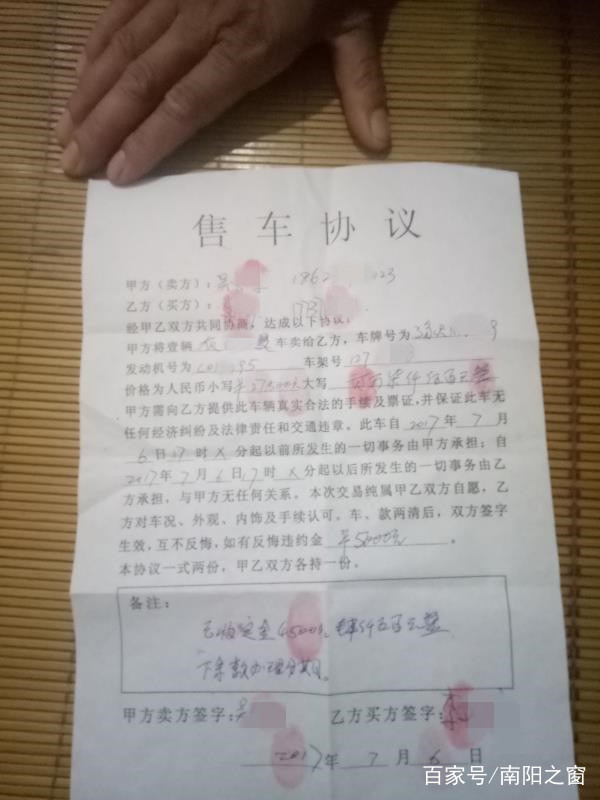 售车协议
甲方（卖方）：吴 1862 123
乙方（买方）：
经甲乙双方共同协商，达成以下协议：
甲方将壹辆 车卖给乙方，车牌号为
发动机号为 95 车架号 127
价格为人民币小写 大写
甲方需向乙方提供此车辆真实合法的手续及票证，并保证此车无
任何经济纠纷及法律责任和交通违章。此车自 2017 年 7 月
6 日 17 时 X 分起以前所发生的一切事务由甲方承担；自
2017年 7 月 6 日 17 时 X 分起以后所发生的一切事务由乙
方承担，与甲方无任何关系。本次交易纯属甲乙双方自愿，乙
方对车况、外观、内饰及手续认可。车、款两清后，双方签字
生效，互不反悔，如有反悔违约金 ¥5000元 。
本协议一式两份，甲乙双方各持一份。
备注：
已收定金 元整
下余款办理分期。
甲方卖方签字：吴 乙方买方签字：李
2017年 7 月 6 日
百家号/南阳之窗